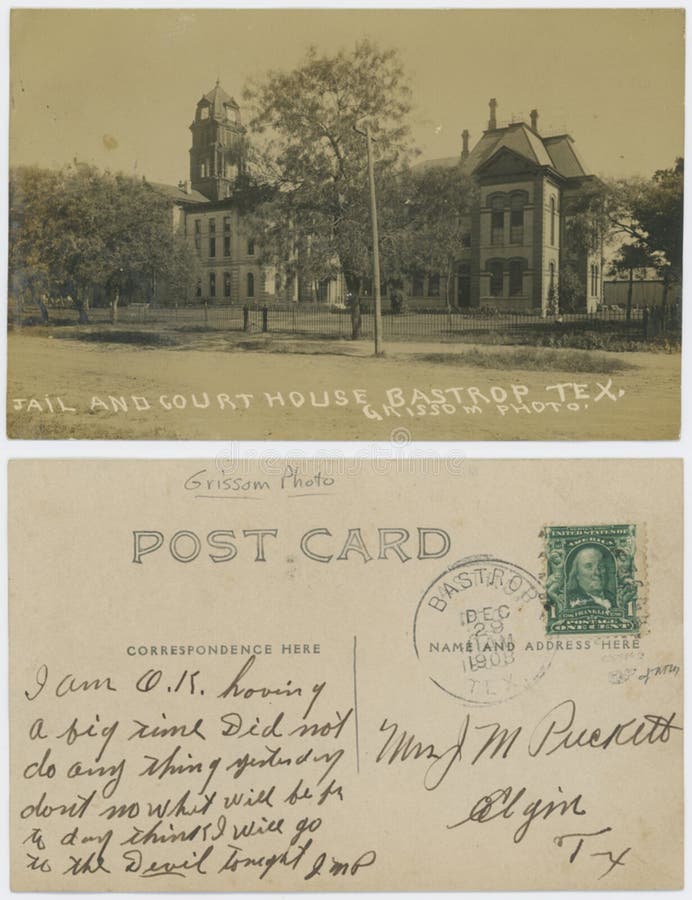 JAIL AND COURT HOUSE BASTROP TEX.
GRISSOM PHOTO.
dreamstime
Grissom Photo
POST CARD
UNITED STATES OF
AMERICA
FRANKLIN
1 POSTAGE 1
ONE CENT
BASTROP
DEC
29
1908
TEX.
CORRESPONDENCE HERE
NAME AND ADDRESS HERE
I am O.K. having
a big time Did not
do any thing yesterday
dont no what will be
to day think I will go
to the Devil tonight JMP
Mrs J M Puckett
Elgin
Tx